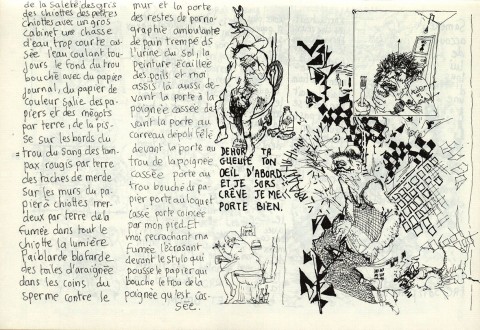 de la saleté des gris
des chiottes des petites
chiottes avec un gros
cabinet une chasse
d'eau trop courte cas-
sée l'eau coulant tou-
jours le fond du trou
bouché avec du papier
journal, du papier de
couleur salie des pa-
piers et des mégots
par terre, de la pis-
se sur les bords du
trou du sang des tam-
pax rougis par terre
des taches de merde
sur les murs du pa-
pier à chiottes mer-
deux par terre de la
fumée dans tout le
chiotte la lumière
blafarde
des toiles d'araignée
dans les coins du
sperme contre le
mur et la porte
des restes de porno-
graphie ambulante
de pain trempé ds
l'urine du sol, la
peinture écaillée
des poils et moi
assis là aussi de-
vant la porte à la
poignée cassée de-
vant la porte au
carreau dépoli télé
devant la porte au
trou de la poignée
cassée porte au
trou bouché du pa-
pier porte au loquet
cassé porte coincée
par mon pied. Et
moi recrachant ma
fumée l'écrasant
devant le stylo qui
pousse le papier qui
bouche le trou de la
poignée qu'est cas-
sée.
DEHORS TA
GUEULE TON
OEIL D'ABORD
ET JE SORS
CRÈVE JE ME
PORTE BIEN.